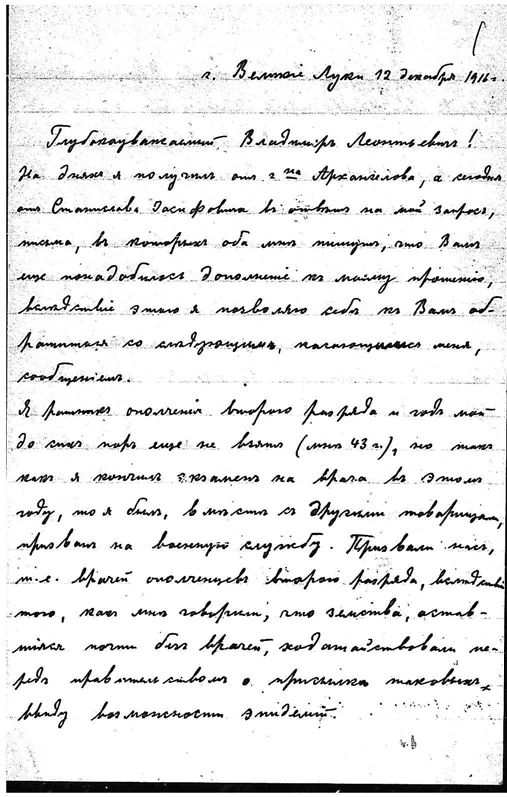 г. Великіе Луки 12 декабря 1916 г.
Глубокоуважаемый Владиміръ Леонтьевичъ!
На дняхъ я получилъ отъ г-на Архангелова, а сегодня
отъ Станислава Іосифовича въ отвѣтъ на мой запросъ,
письма, въ которыхъ оба мнѣ пишутъ, что Вамъ
еще понадобилось дополненіе къ моему прошенію,
вслѣдствіе этого я позволяю себѣ къ Вамъ об-
ратиться со слѣдующимъ, касающимся меня,
сообщеніемъ.
Я ратникъ ополченія второго разряда и годъ мой
до сихъ поръ еще не взятъ (мнѣ 43 г.), но такъ
какъ я кончилъ экзаменъ на врача въ этомъ
году, то я былъ, вмѣстѣ съ другими товарищами,
призванъ на военную службу. Призвали насъ,
т.е. врачей ополченцевъ второго разряда, вслѣдствіе
того, какъ мнѣ говорили, что земства, остав-
шіяся почти безъ врачей, ходатайствовали пе-
редъ правительствомъ о присылкѣ таковыхъ,
ввиду возможности эпидемій.